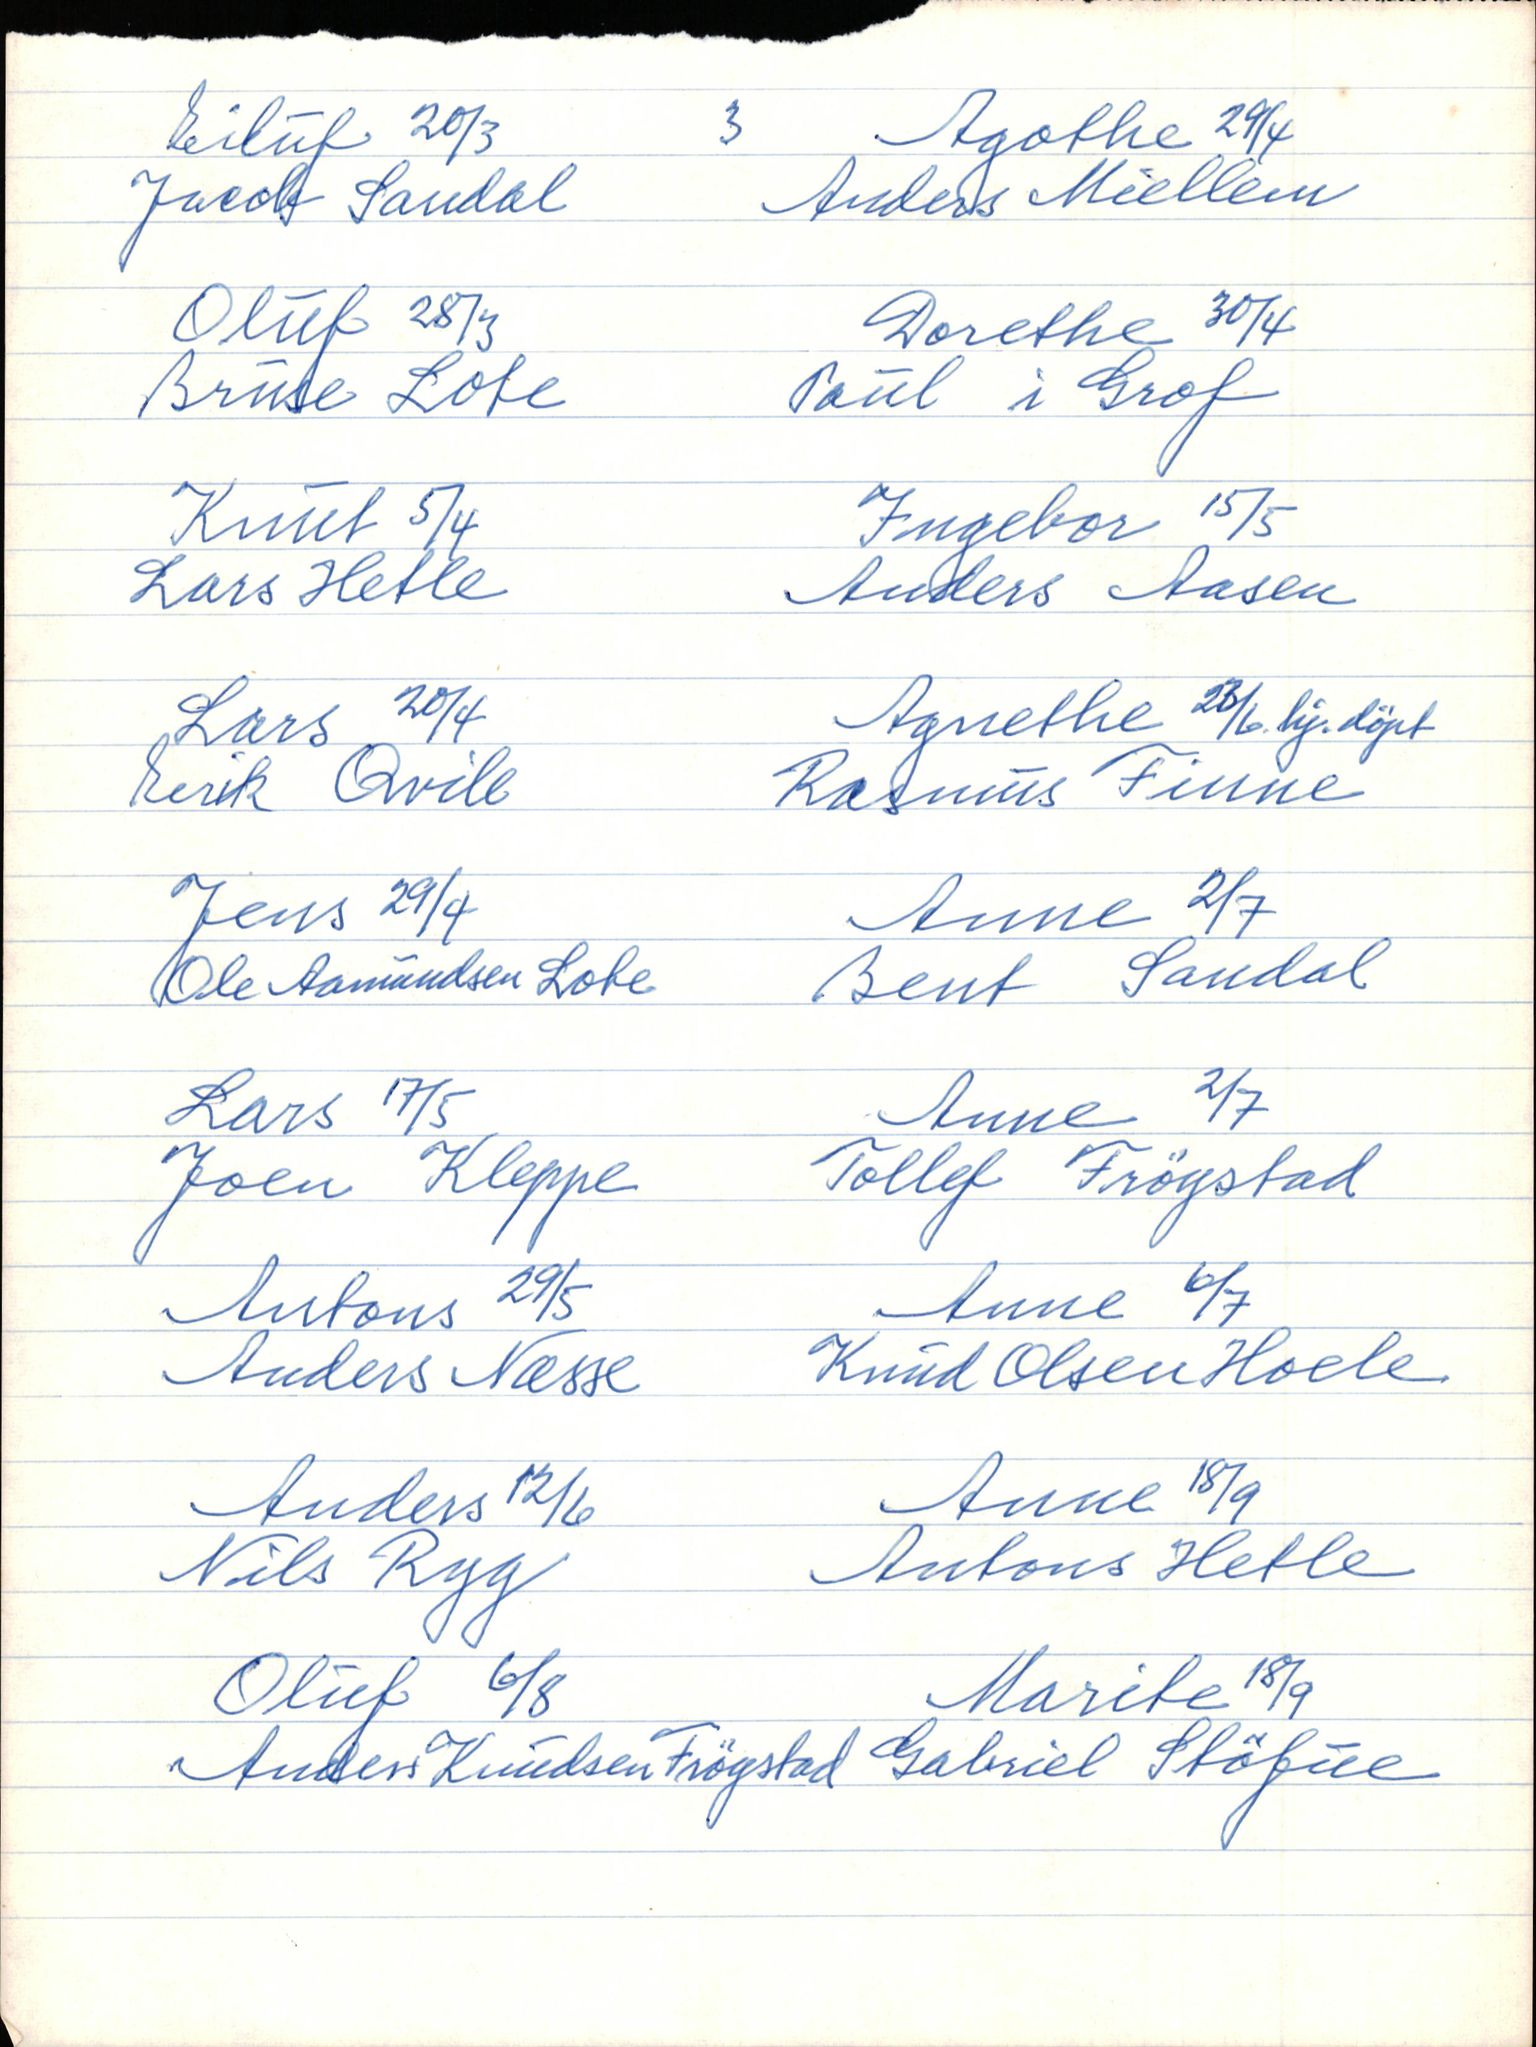 3
Eiluf 20/3
Jacob Sandal
Oluf 28/3
Bruse Lote
Knut 5/4
Lars Hetle
Lars 20/4
Eerik Qvile
Jens 29/4
Ole Aamundsen Lote
Lars 17/5
Joen Kleppe
Antons 29/5
Anders Næsse
Anders 12/6
Nils Ryg
Oluf 6/8
Anders Knudsen Frögstad
Agothe 29/4
Anders Miellem
Dorethe 30/4
Paul i Grof
Ingebor 15/5
Anders Aasen
Agnethe 23/6. hj. döpt
Rasmus Finne
Anne 2/7
Bent Sandal
Anne 2/7
Tollef Frögstad
Anne 6/7
Knud Olsen Hoele
Anne 18/9
Antons Hetle
Marite 18/9
Gabriel Stöfne